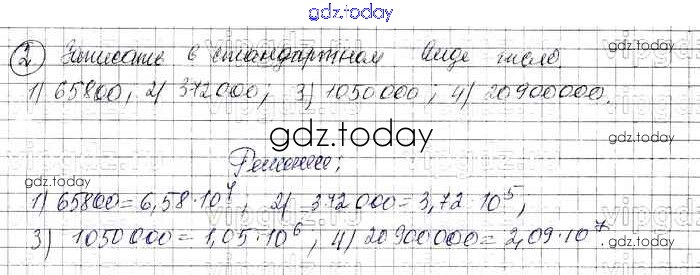 gdz.today
2 Записать в стандартном виде число.
1) 65800, 2) 372000, 3) 1050000; 4) 20900000.
gdz.today
Решение:
gdz.today
1) 65800=6,58·10⁴, 2) 372000=3,72·10⁵,
3) 1050000=1,05·10⁶, 4) 20900000=2,09·10⁷.
gdz.today
gdz.today
gdz.today